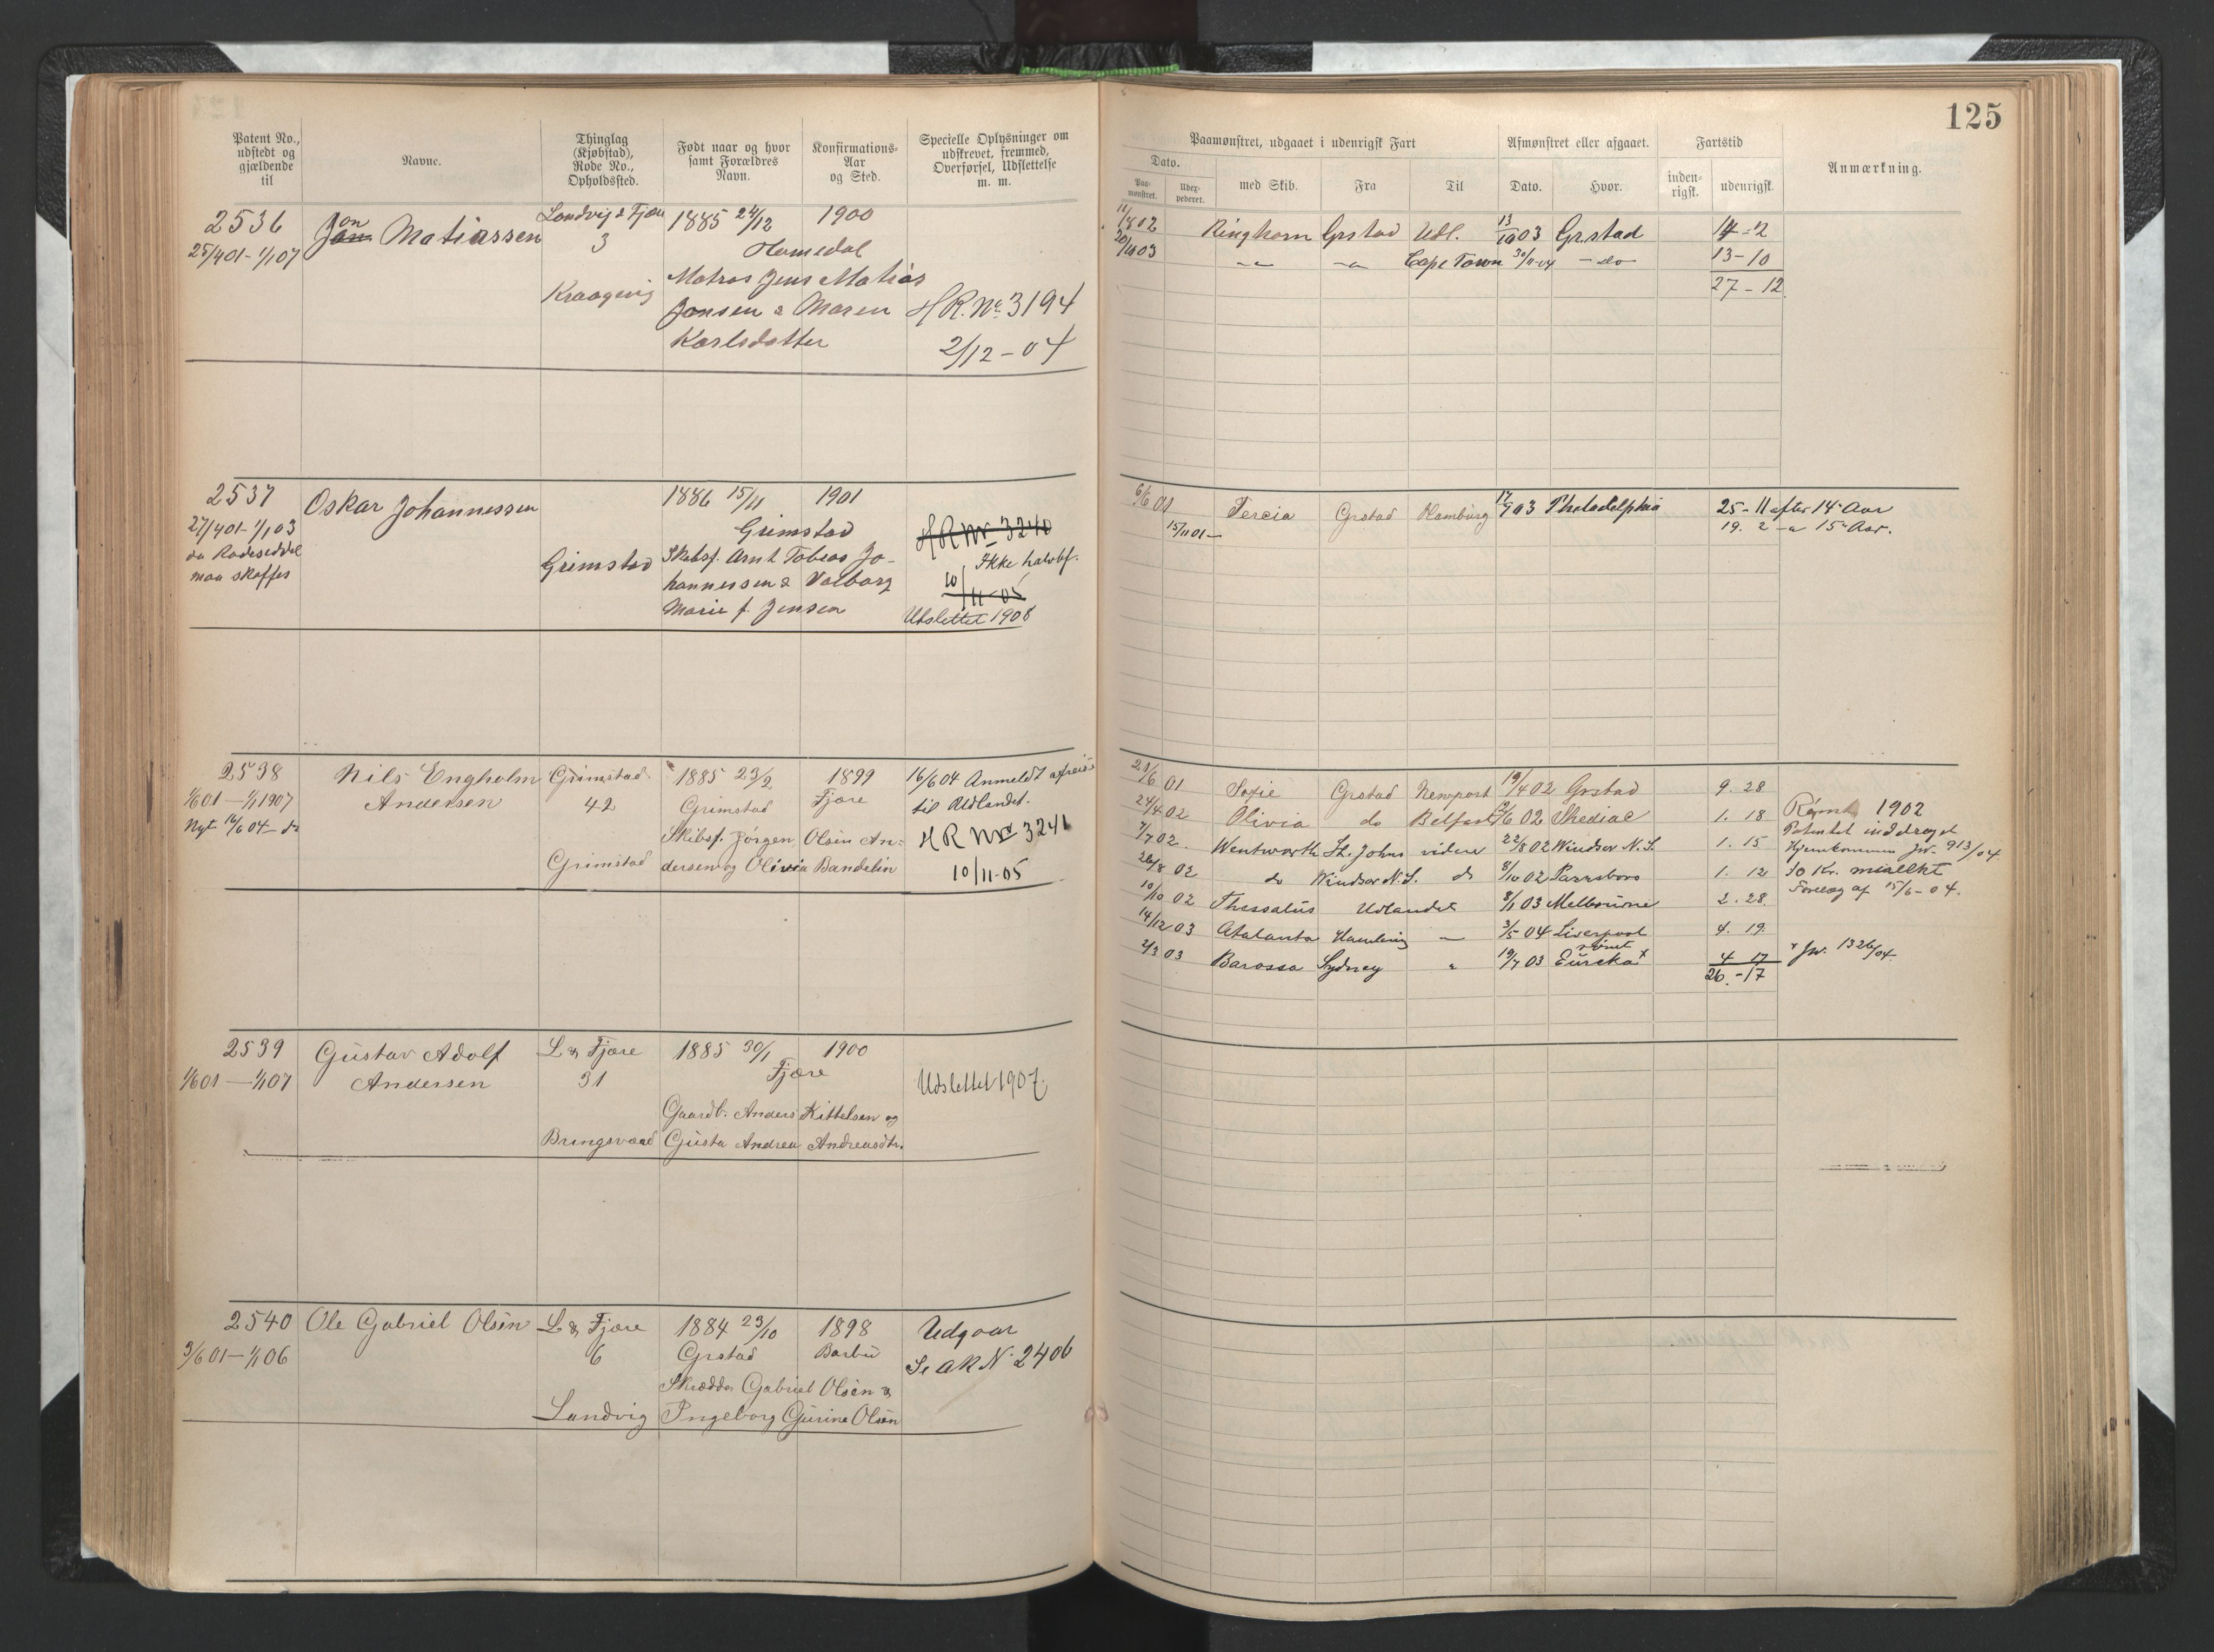 125
Patent No., udstedt og gjældende til
Navne.
Thinglag (Kjøbstad), Rode No., Opholdssted.
Født naar og hvor samt Forældres Navn.
Konfirmations-Aar og Sted.
Specielle Oplysninger om udskrevet, fremmed, Overførsel, Udslettelse m. m.
Paamønstret, udgaaet i udenrigsk Fart
Dato.
Paa-mønstret.
med Skib.
Fra
Til
Afmønstret eller afgaaet.
Dato.
Hvor.
Fartstid
inden-rigsk.
udenrigsk.
Anmærkning.
2536
25/4 01 - 1/1 07
Jon Matiassen
Landvig & Fjære
3
1885 24/12 1900
Homedal
Matros Jens Matias
Jensen & Maren
Karlsdatter
H R. No 3194
2/12 - 04
11/8 02 Ringhorn Grstad Udl. 13/10 03 Grstad 14 - 2
Cape Town 30/11 04 - do - 13 - 10
27 - 12
2537
27/4 01 - 1/1 03
da Rodeseddel
maa skaffes
Oskar Johannessen
Grimstad
1886 15/11 1901
Grimstad
Skibsf. Arnt Tobias Jo-
hannessen & Valborg
Marie f. Jensen
H R No 3240
Ikke halvbf.
10/11 - 05
Udslettet 1908
6/6 01 Grstad Hamburg 17/9 03 Philadelphia 25 - 11 efter 14 Aar
15/11 01 - 19. 2 - " 15 Aar.
2538
1/6 01 - 1/1 1907
Nyt 16/6 04 - do
Nils Engholm
Andersen
Grimstad
42
Grimstad
1885 23/2 1899
Grimstad Fjære
Skibsf. Jörgen Olsen An-
dersen og Olivia Bandelin
16/6 04 Anmeldt afreist
til Udlandet.
H R No 3241
10/11 - 05
21/6 01 Sofie Grstad Newport 19/4 02 Grstad 9. 28
24/4 02 Olivia do Belfast 02 Shediac 1. 18
7/7 02 Wentworth St. Johns videre 22/8 02 Windsor N.S. 1. 15
26/8 02 do Windsor N.S. do 8/10 02 Parrsboro 1. 12
10/10 02 Thessalus Udlandet 8/1 03 Melbourne 2. 28
14/12 03 Atalanta Hamburg - 3/5 04 Liverpool 4. 19.
2/3 03 Barossa Sydney " 19/7 03 Eureka x rømt 4 17
26. - 17
Rømt 1902
Patentet inddraget
Hjemkommen Jw. 913/04
10 Kr. mulkt
Forelæg af 15/6 - 04.
x Jw. 1326/04
2539
1/6 01 - 1/1 07
Gustav Adolf
Andersen
L & Fjære
31
Bringsværd
1885 30/1 1900
Fjære
Gaardb. Anders Kittelsen og
Gusta Andrea Andreasdtr.
Udslettet 1907.
2540
3/6 01 - 1/1 06
Ole Gabriel Olsen
L & Fjære
6
Landvig
1884 23/10 1898
Grstad Barbu
Skrædder Gabriel Olsen &
Ingeborg Gurine Olsen
Udgaar
Se A R N. 2406